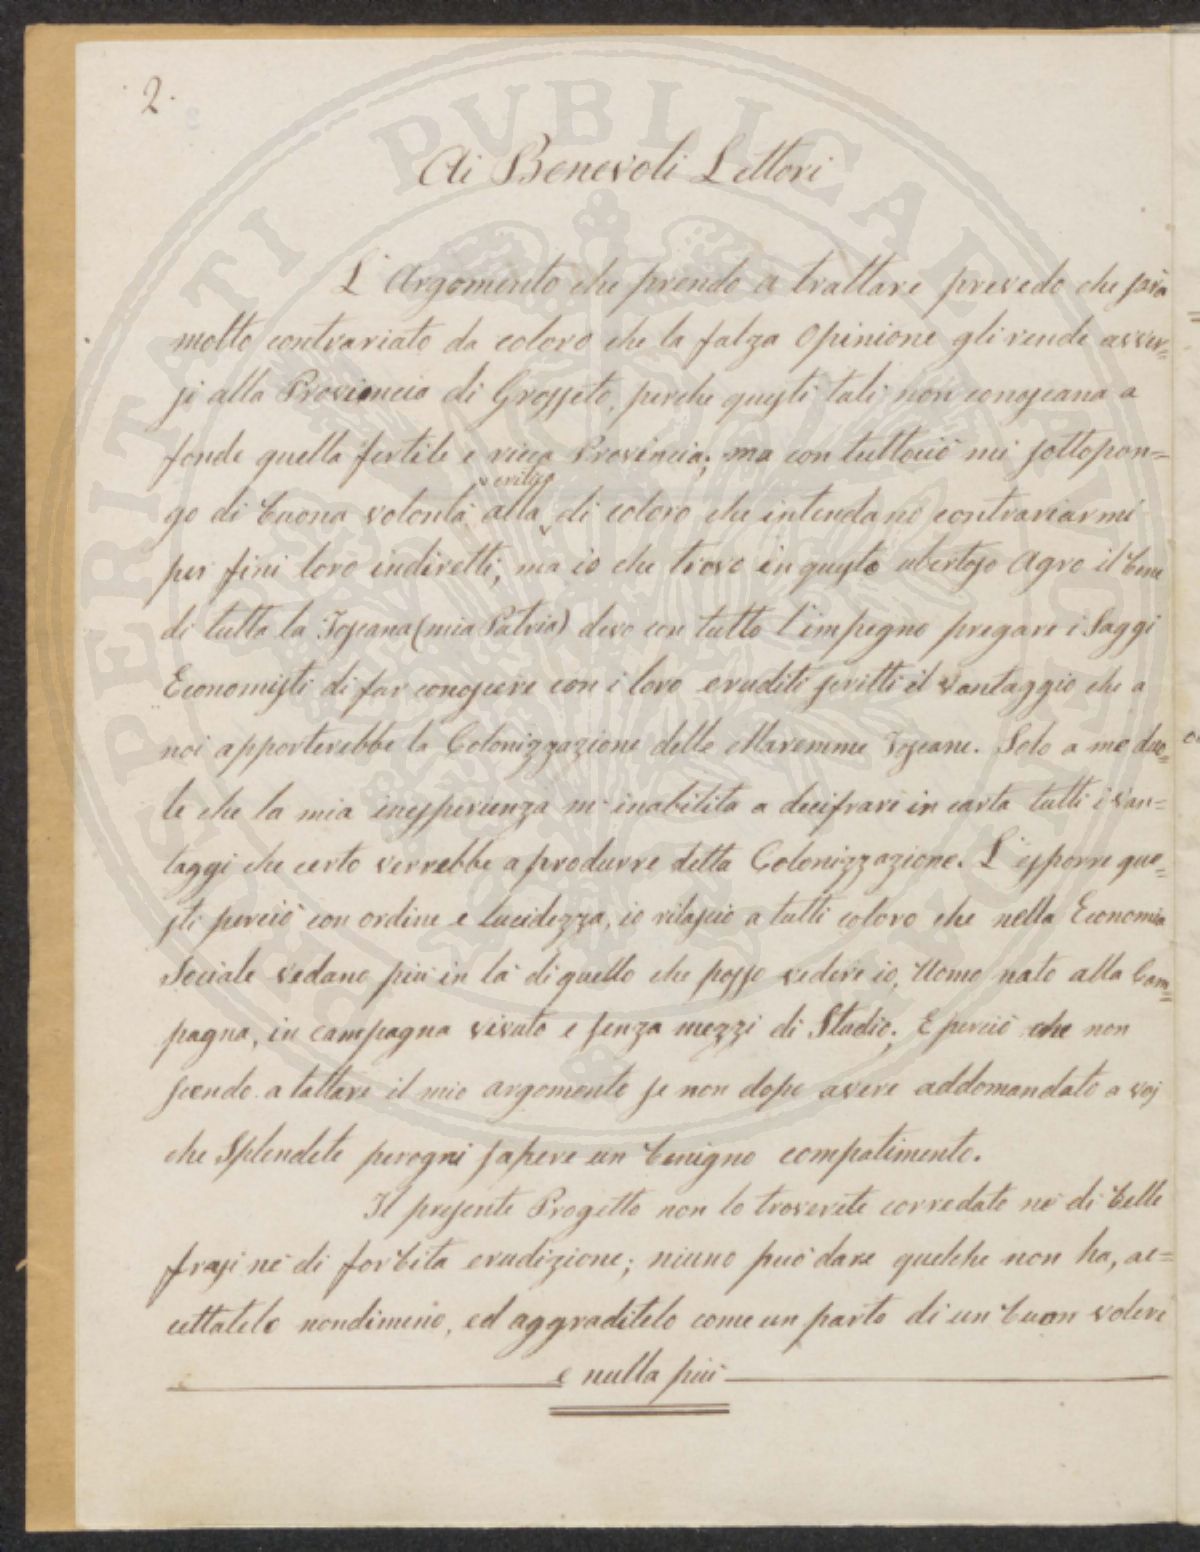 2.
Ai Benevoli Lettori
L'Argomento che prendo a trattare prevedo che sarà
molto contrariato da coloro che la falza Opinione gli rende avver=
si alla Provincia di Grosseto, perche questi tali non conoscana a
fonde quella fertile e ricca Provincia; ma con tuttociò mi sottopon=
critica
go di buona volontà alla di coloro che intendano contrariarmi
per fini loro indiretti, ma io che trovo in questo ubertoso Agro il bene
di tutta la Toscana (mia Patria) devo con tutto l'impegno pregare i Saggi
Economisti di far conoscere con i loro eruditi scritti il Vantaggio che a
noi apporterebbe la Colonizzazione delle Maremme Toscane. Solo a me duo=
le che la mia inesperienza m'inabilita a decifrare in carta tutti i van=
taggi che certo verrebbe a produrre detta Colonizzazione. L'esporre que=
sti perciò con ordine e lucidezza, io rilascio a tutti coloro che nella Economia
Sociale vedano più in là di quello che posso vedere io, Uomo nato alla Cam=
pagna, in campagna vissuto e senza mezzi di Studio; E perciò che non
scendo a tattare il mio argomento se non dopo avere addomandato a voj
che Splendete perogni sapere un benigno compatimento.
Il presente Progetto non lo troverete corredato nè di belle
frasi nè di forbita erudizione; niuno può dare quelche non ha, ac=
cettatelo nondimeno, ed aggraditelo come un parto di un buon volere
e nulla più
PERITATI PUBLICAE